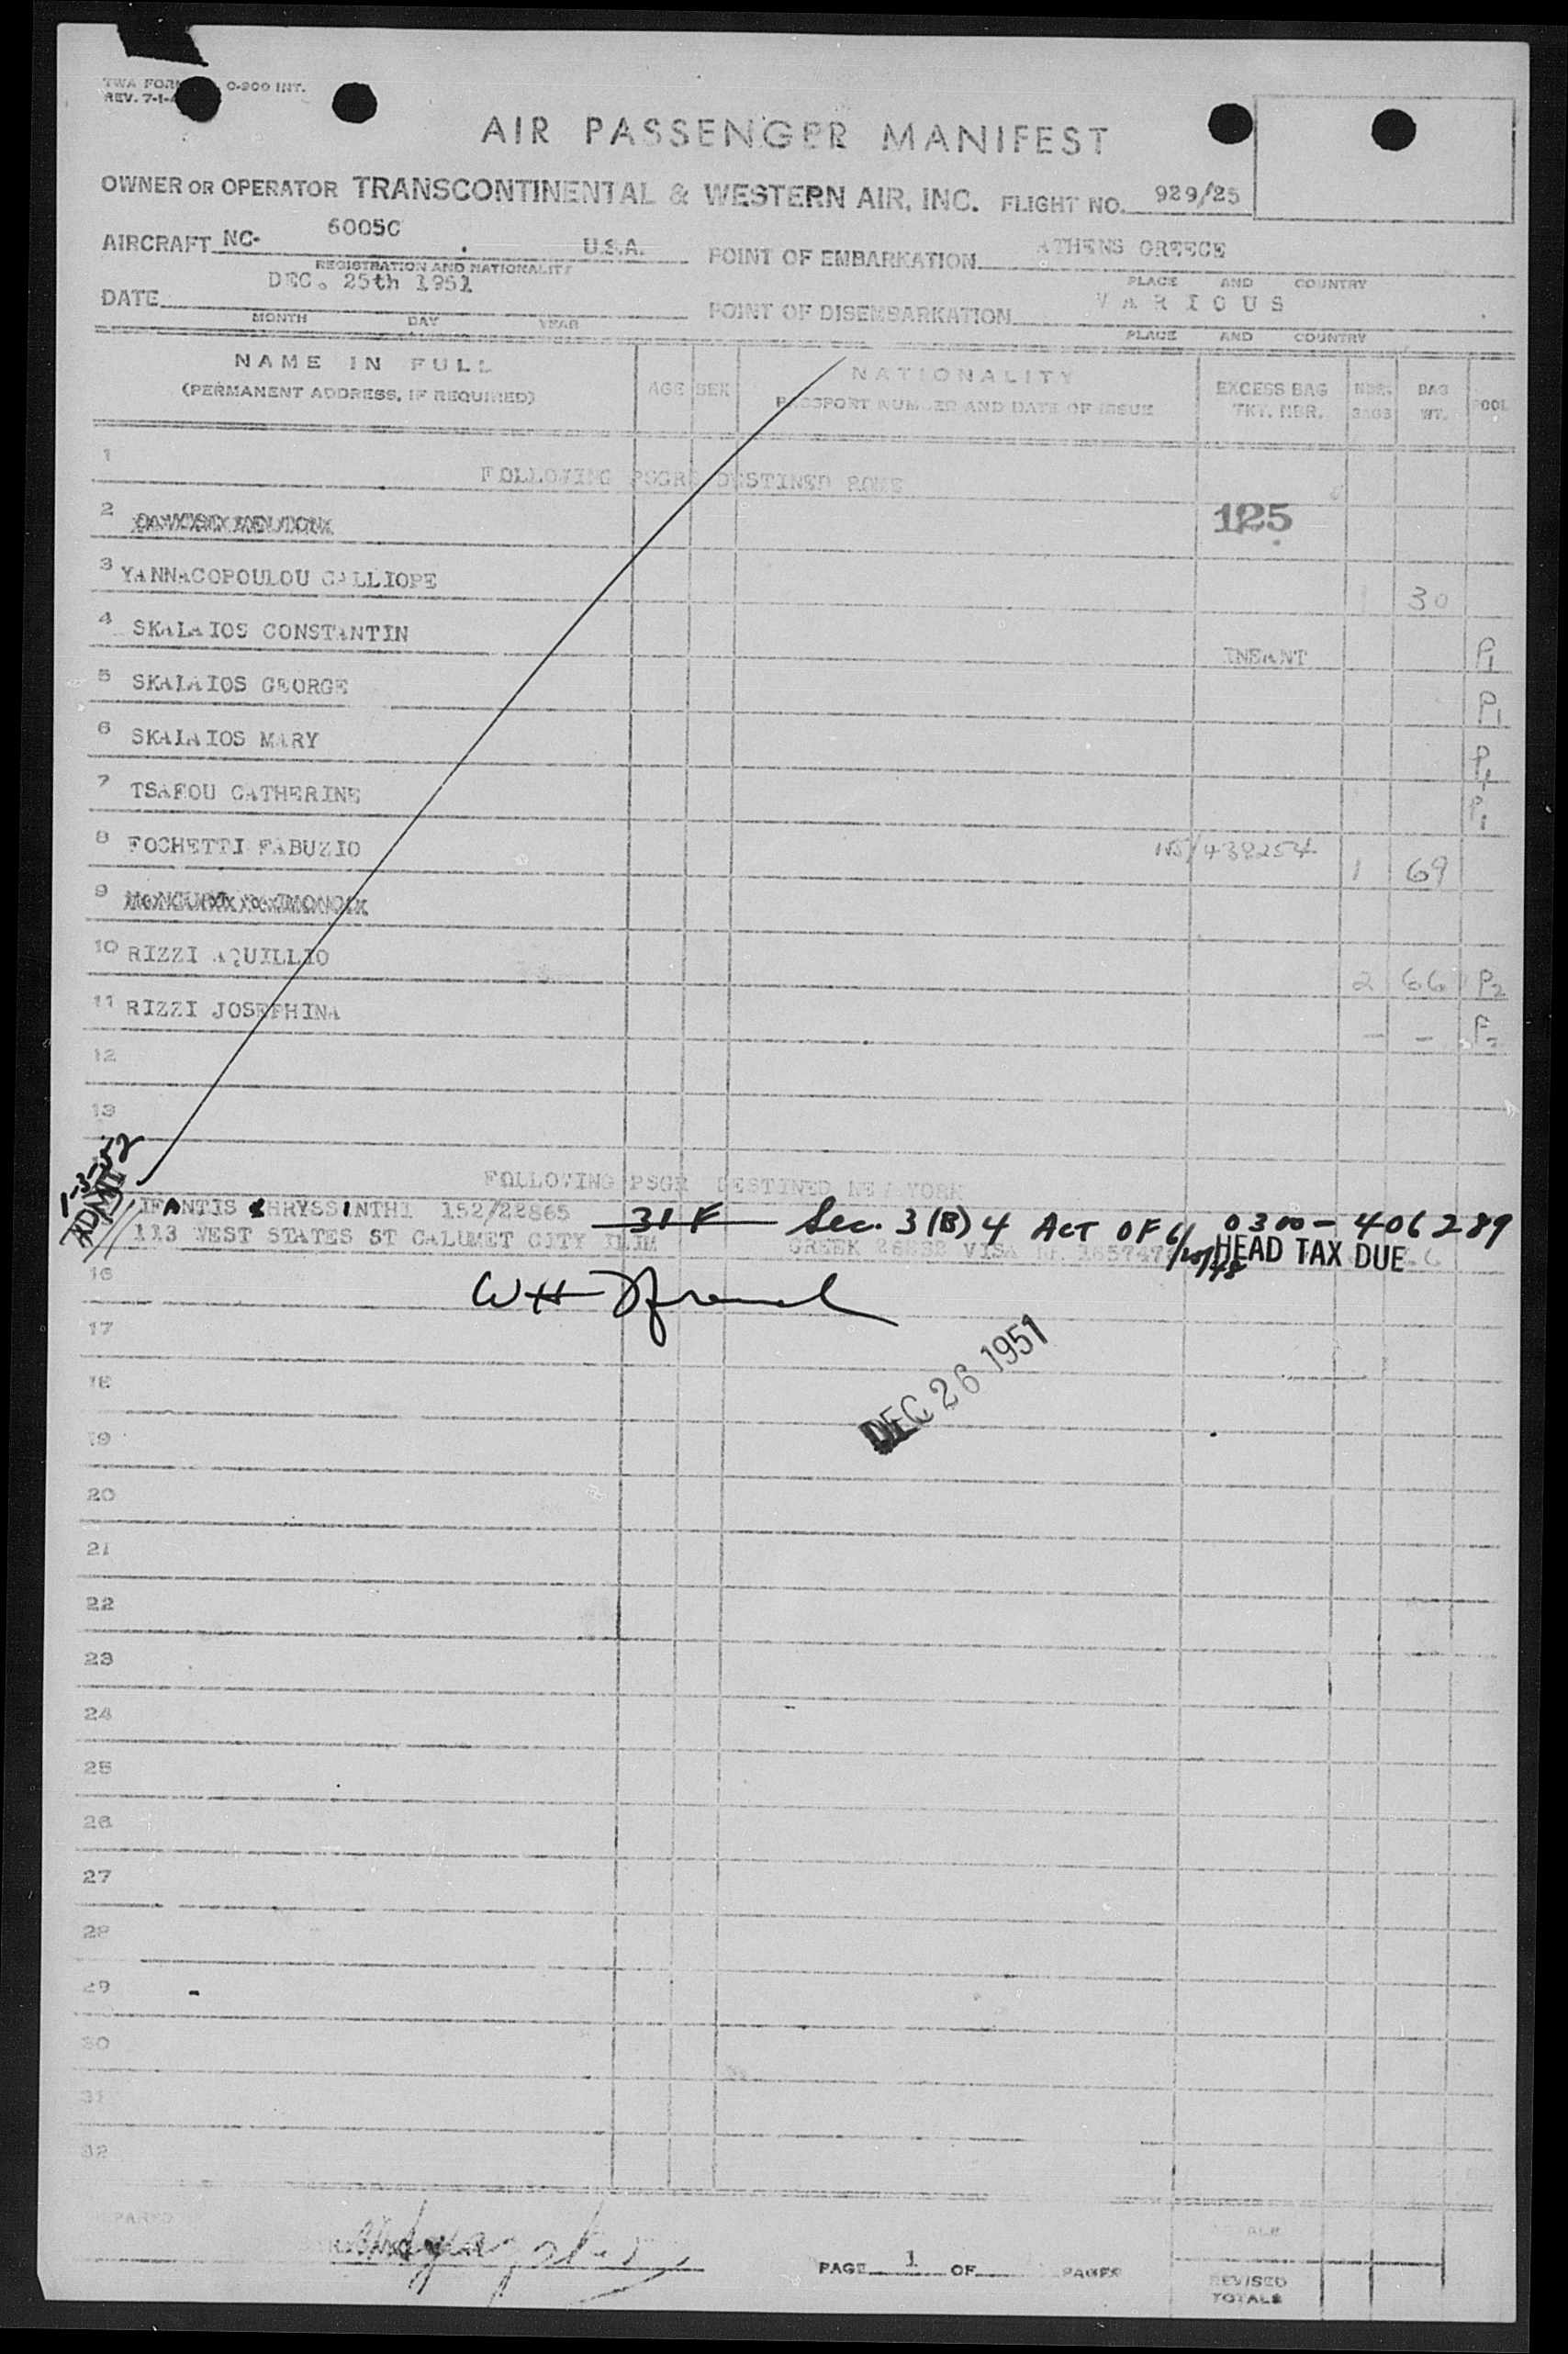 TWA FORM O-200 INT.
REV. 7-1-4
AIR PASSENGER MANIFEST
OWNER OR OPERATOR TRANSCONTINENTAL & WESTERN AIR, INC. FLIGHT NO. 929/25
AIRCRAFT NC- 6005C U.S.A. POINT OF EMBARKATION ATHENS GREECE
REGISTRATION AND NATIONALITY PLACE AND COUNTRY
DATE DEC. 25th 1951 POINT OF DISEMBARKATION VARIOUS
MONTH DAY YEAR PLACE AND COUNTRY
NAME IN FULL AGE SEX NATIONALITY EXCESS BAG NBR. BAG POOL
(PERMANENT ADDRESS, IF REQUIRED) PASSPORT NUMBER AND DATE OF ISSUE TKT. NBR. BAGS WT.
1 FOLLOWING PSGRS DESTINED ROME
2 125
3 YANNACOPOULOU CALLIOPE 1 30
4 SKALAIOS CONSTANTIN INFANT P1
5 SKALAIOS GEORGE P1
6 SKALAIOS MARY P1
7 TSAFOU CATHERINE P1
8 FOCHETTI FABUZIO 115/438254 1 69
9
10 RIZZI AQUILLIO 2 66 P2
11 RIZZI JOSEPHINA - - P2
12
13
1-3-52
ADMT
FOLLOWING PSGR DESTINED NEW YORK
IFANTIS CHRYSSINTHI 152/22865 31 F Sec. 3 (B) 4 ACT OF 6/25/48 0300-406289
113 WEST STATES ST CALUMET CITY GREEK VISA HEAD TAX DUE
16
17
DEC 26 1951
18
19
20
21
22
23
24
25
26
27
28
29
30
31
32
PAGE 1 OF PAGES
REVISED
TOTALS